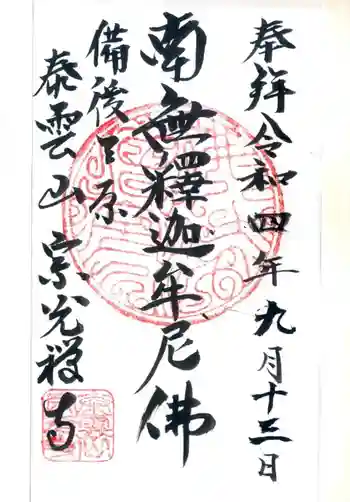 奉拝 令和四年九月十三日
南無釋迦牟尼佛
備後三原
泰雲山 宗光禅寺